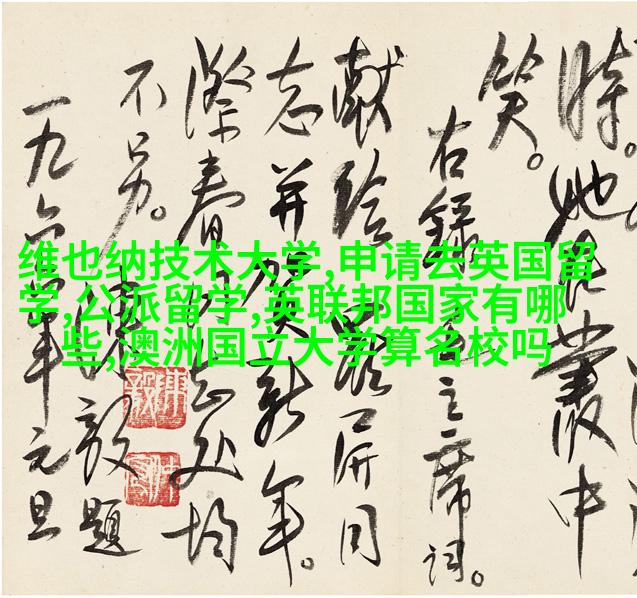 维也纳技术大学,申请去英国留
学,公派留学,英联邦国家有哪
些,澳洲国立大学算名校吗
時。她在叢中
笑。
右録主席詞。
献给屏同
志并贺新年。
際春同志处均
不另。
一九六年元旦
陳毅題